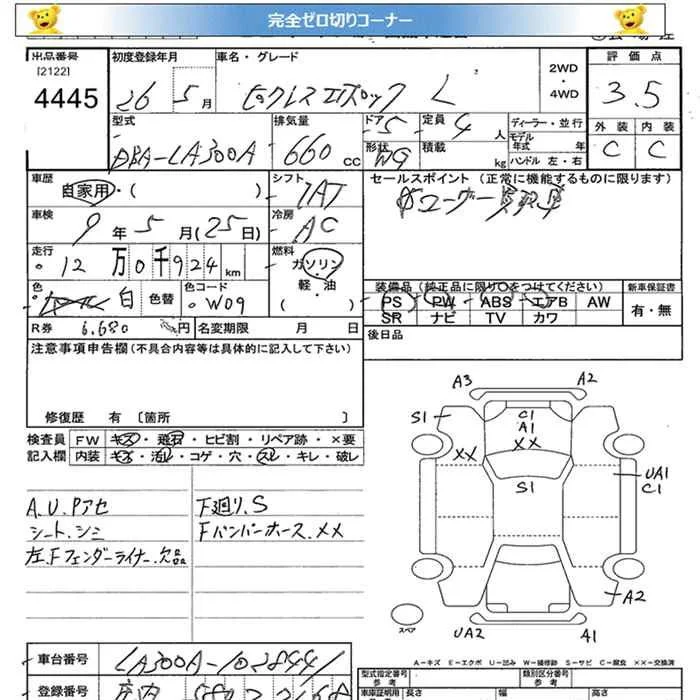 完全ゼロ切りコーナー
出品番号 初度登録年月 車名・グレード 2WD ・ 4WD 評価点
[2122]
4445 26 5月 ピクシスエポック L 3.5
型式 排気量 ドア 5 定員 4人 ディーラー・並行 外装 内装
DBA-LA300A 660cc 形状 WG 積載 kg モデル年式 年 C C
ハンドル 左・右
車歴 自家用・( ) シフト IAT セールスポイント (正常に機能するものに限ります)
車検 9年5月(25日) 冷房 AC
走行 12万0千924km 燃料 ガソリン・軽・油 ( )
装備品 (純正品に限り〇をつけてください) 新車保証書
色 白 色替 色コード W09 PS PW ABS エアB AW 有・無
SR ナビ TV カワ
R券 6,680円 名変期限 月 日 後日品
注意事項申告欄(不具合内容等は具体的に記入して下さい)
修復歴 有 〔箇所 〕
検査員 FW キズ・飛石・ヒビ割・リペア跡・×要
記入欄 内装 キズ・汚レ・コゲ・穴・スレ・キレ・破レ
A.U.Pアセ 下廻り.S
シート.シミ Fバンパーホース.××
左.Fフェンダーライナー.欠品
A3 A2
S1 C1
A1
×× ××
S1 UA1
C1
A2
スペア UA2 A1
A-キズ E-エクボ U-凹み W-補修跡 S-サビ C-腐食 ××-交換済
車台番号 LA300A-1028441 型式指定番号 参考 類別区分番号 参考
登録番号 庄内 580 車庫証明用 参考 長さ 幅 高さ